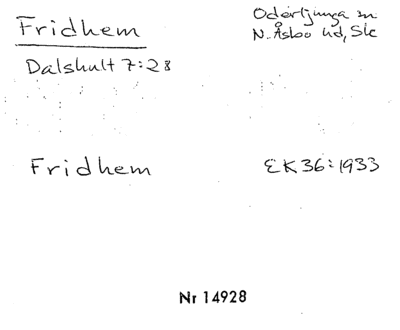 Fridhem
Oderljunga sn
N. Åsbo hd, Sk
Dalshult 7:28
Fridhem
EK36:1933
Nr 14928